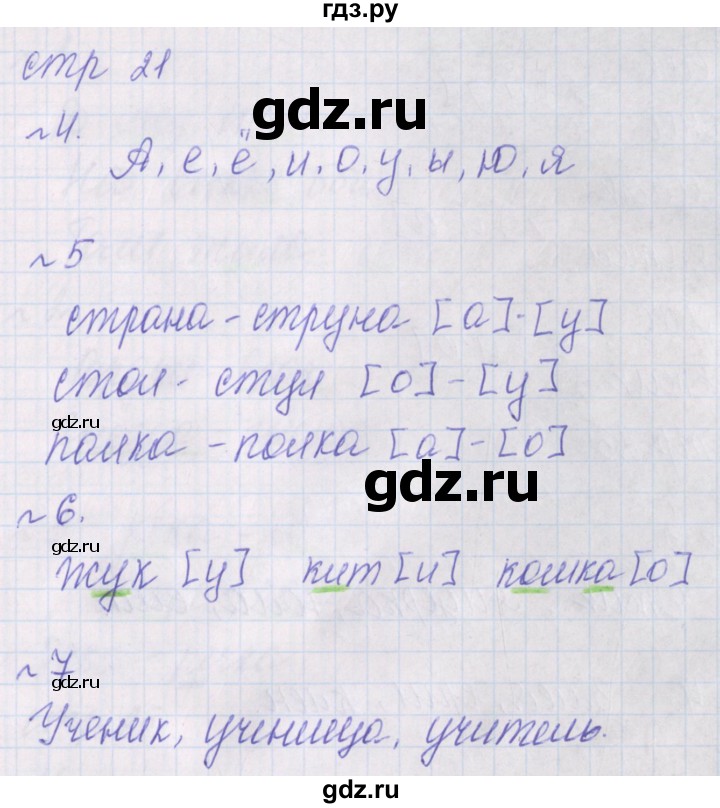 гдз.ру
стр 21
gdz.ru
№4.
А, е, ё, и, о, у, ы, ю, я
№5
страна - струна [а]-[у]
стол - стул [о]-[у]
gdz.ru
палка - полка [а]-[о]
gdz.ru
№6.
gdz.ru
жук [у] кит [и] кошка [о]
№7
gdz.ru
Ученик, ученица, учитель.
gdz.ru